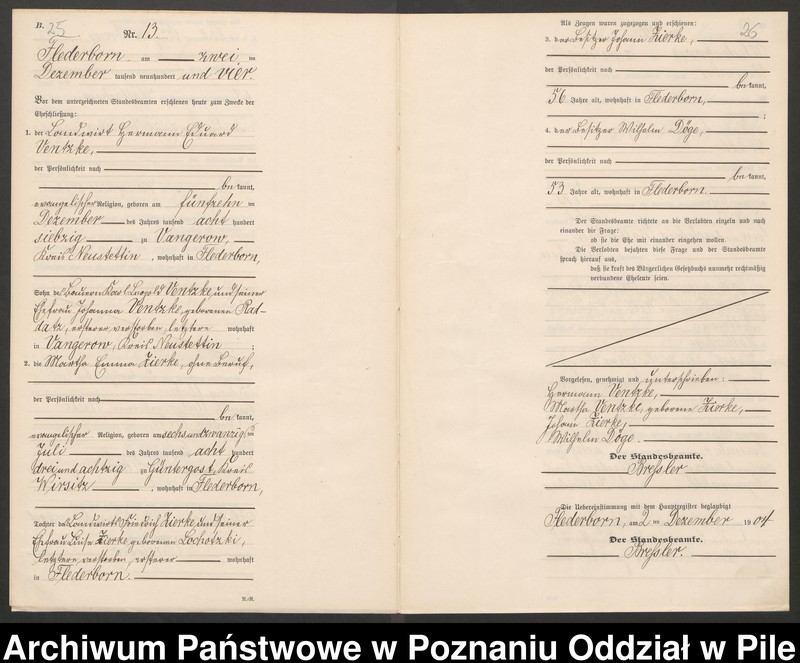 B. 25
Nr. 13.
Flederborn am zwei ten
Dezember tausend neunhundert und vier.
Vor dem unterzeichneten Standesbeamten erschienen heute zum Zwecke der
Eheschließung:
1. der Landwirt Hermann Eduard
Ventzke,
der Persönlichkeit nach
be kannt,
evangelischer Religion, geboren am fünfzehn ten
Dezember des Jahres tausend acht hundert
siebzig zu Vangerow,
Kreis Neustettin, wohnhaft in Flederborn,
Sohn des Bauern Karl Leopold Ventzke und seiner
Ehefrau Johanna Ventzke, geborenen Rad-
datz, ersterer verstorben, letztere wohnhaft
in Vangerow, Kreis Neustettin;
2. die Martha Emma Zierke, ohne Beruf,
der Persönlichkeit nach
be kannt,
evangelischer Religion, geboren am sechsundzwanzig ten
Juli des Jahres tausend acht hundert
dreiundachtzig zu Güntergost, Kreis
Wirsitz, wohnhaft in Flederborn,
Tochter des Landwirts Friedrich Zierke und seiner
Ehefrau Luise Zierke geborenen Lochotzki,
letztere verstorben, ersterer wohnhaft
in Flederborn.
26
Als Zeugen waren zugezogen und erschienen:
3. der Besitzer Johann Zierke,
der Persönlichkeit nach
be kannt,
56 Jahre alt, wohnhaft in Flederborn,
;
4. der Besitzer Wilhelm Döge,
der Persönlichkeit nach
be kannt,
53 Jahre alt, wohnhaft in Flederborn.
Der Standesbeamte richtete an die Verlobten einzeln und nach
einander die Frage:
ob sie die Ehe mit einander eingehen wollen.
Die Verlobten bejahten diese Frage und der Standesbeamte
sprach hierauf aus,
daß sie kraft des Bürgerlichen Gesetzbuchs nunmehr rechtmäßig
verbundene Eheleute seien.
Vorgelesen, genehmigt und unterschrieben:
Hermann Ventzke,
Martha Ventzke, geborene Zierke,
Johann Zierke,
Wilhelm Döge.
Der Standesbeamte.
Bressler
Die Uebereinstimmung mit dem Hauptregister beglaubigt
Flederborn, am 2 ten Dezember 1904
Der Standesbeamte.
Bressler.
Archiwum Państwowe w Poznaniu Oddział w Pile